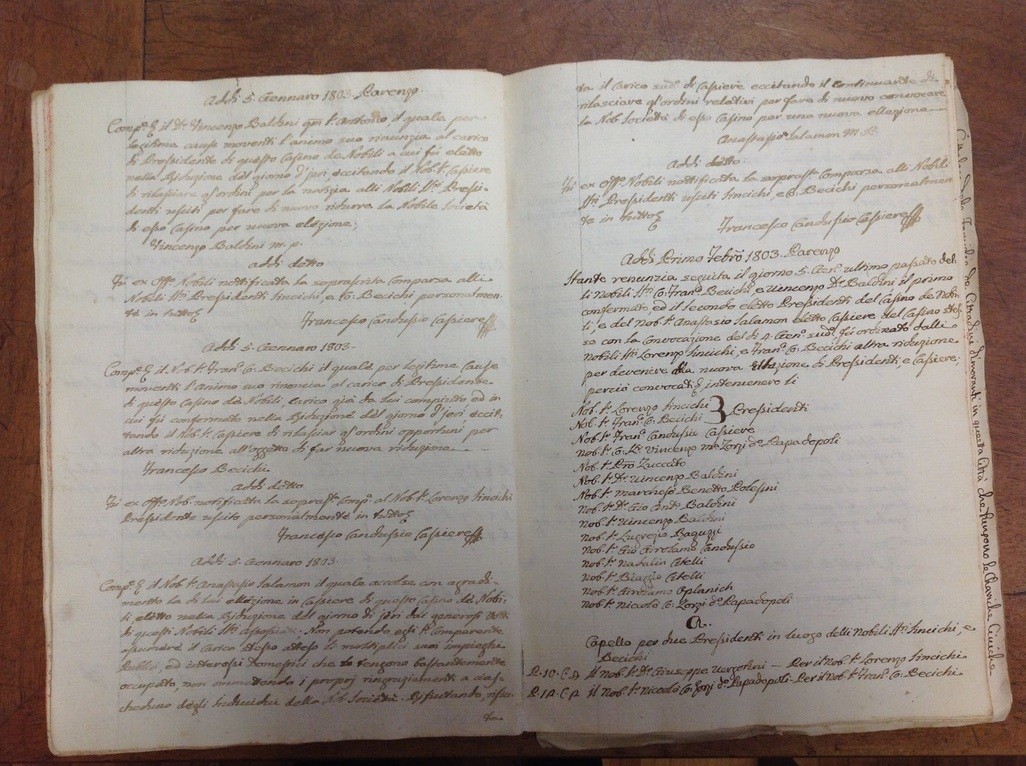 Addi 5. Gennaro 1803. Parenzo.
Comp.e il D.r Vincenzo Baldini q.m S.r Antonio il quale per
legitime cause moventi l'animo suo rinunzia al carico
di Presidente di questo Casino de Nobili a cui fu eletto
nella Riduzione del giorno d'jeri, eccitando il Nob. S.r Cassiere
di rilasciare gl'ordini per la notizia alli Nobili SS.ri Presi-
denti usciti per fare di nuovo ridurre la Nobile Società
di esso Casino per nuova elezione;
Vincenzo Baldini m. p.
addi detto
Fù ex Off.o Nobili nottificata la soprascritta Comparsa alli
Nobili SS.ri Presidenti Sincichi, e Co. Becichi personalmen-
te in tutto
Francesco Candussio Cassiere
Addi 5. Gennaro 1803.
Comp.e il Nob. S.r Fran.o Co. Becichi il quale per legitime cause
moventi l'animo suo rinoncia al carico di Presidente
di questo Casino de Nobili, carico già da lui compiuto, ed in
cui fù confermato nella Riduzione del giorno d'jeri, eccit-
tando il Nob. S.r Cassiere di rilasciar gl'ordini opportuni per
altra riduzione all'oggetto di far nuova riduzione.
Francesco Becichi
Addi detto
Fù ex Off.o Nob. notificata la soprast.a Comp.a al Nob. S.r Lorenzo Sincichi
Presidente uscito personalmente in tutto
Francesco Candussio Cassiere
Addi 5. Gennaro 1803.
Comp.e il Nob. S.r Anastasio Salamon il quale accolse con agradi-
mento la di lui ellezione in Cassiere di questo Casino de Nobi-
li eletto nella Riduzione del giorno di jeri dai generosi
di questi Nobili SS.ri Non potendo egli S.r Comparente
assumere il carico stesso le moltiplici suoi impieghi
Publici, ed interessi Domestici che lo tengono bastantemente
occupato, non ommettendo i proprj ringraziamenti a cias-
cheduno degli Individui della Nob. Società.
ta il Carico sud.o di Cassiere eccitando il Continuante di
rilasciare gl'ordini relativi per fare di nuovo convocare
la Nob. Società di esso Casino per una nuova ellezione
Anastasio Salamon M. P.
Addi detto.
Fù ex Off.o Nobili nottificata la soprast.a Comparsa alli Nobili
SS.ri Presidenti usciti Sincichi, e Co. Becichi personalmen-
te in tutto
Francesco Candussio Cassiere
Addi Primo Febrò 1803. Parenzo
Stante renunzia seguita il giorno 5. Gen.o ultimo passato del-
li Nobili SS.ri Co. Fran.o Becichi, e Vincenzo D.r Baldini il primo
confermato, ed il secondo eletto Presidenti del Casino de Nobi-
li, e del Nob. S.r Anastasio Salamon eletto Cassiere del Casino stes-
so con la Convocazione del dì 4. Gen.o sud.o fù ordinato dalli
Nobili SS.ri Lorenzo Sincichi, e Fran.o Co. Becichi altra riduzione
per devenire alla nuova ellezione di Presidenti, e Cassiere.
perciò convocati intervenero li
Nob. S.r Lorenzo Sincichi
Nob. S.r Fran.o Co. Becichi } Presidenti
Nob. S.r Fran.o Candussio Cassiere
Nob. S.r Co. D.r Vincenzo M.a Zorzi d.o Papadopoli
Nob. S.r Pro Zuccato
Nob. S.r D.r Vincenzo Baldini
Nob. S.r Marchese Benetto Polesini
Nob. S.r D.r Gio: Ant.o Baldini
Nob. S.r Vincenzo Baldini
Nob. S.r Lugrezio Baguzzi
Nob. S.r Gio: Girolamo Candussio
Nob. S.r Nadalin Catelli
Nob. S.r Biaggio Catelli
Nob. S.r Girolamo Oplanich
Nob. S.r Nicolò Co. Zorzi d.o Papadopoli
A.
Capello per due Presidenti in luogo delli Nobili SS.ri Sincichi, e
Becichi
P. 10. C. A Il Nob. S.r D.r Giuseppe Vergotini – Per il Nob. S.r Lorenzo Sincichi
P. 14. C. A Il Nob. S.r Nicolò Co. Zorzi d.o Papadopoli. Per il Nob. S.r Fran.o Co. Becichi